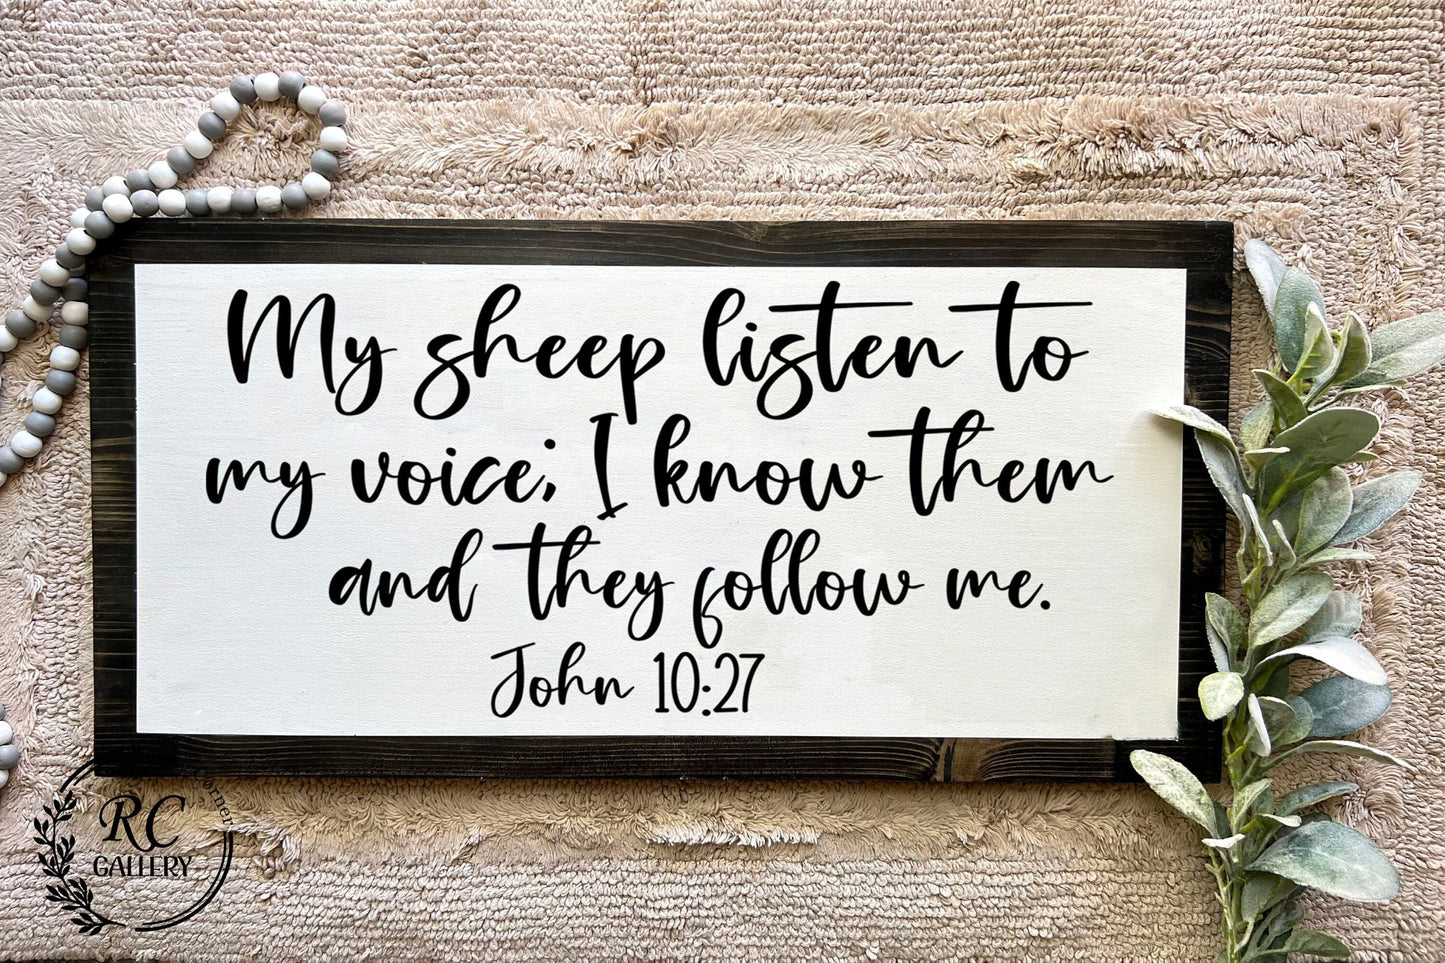 My sheep listen to
my voice; I know them
and they follow me.
John 10:27
Corner
RC
GALLERY